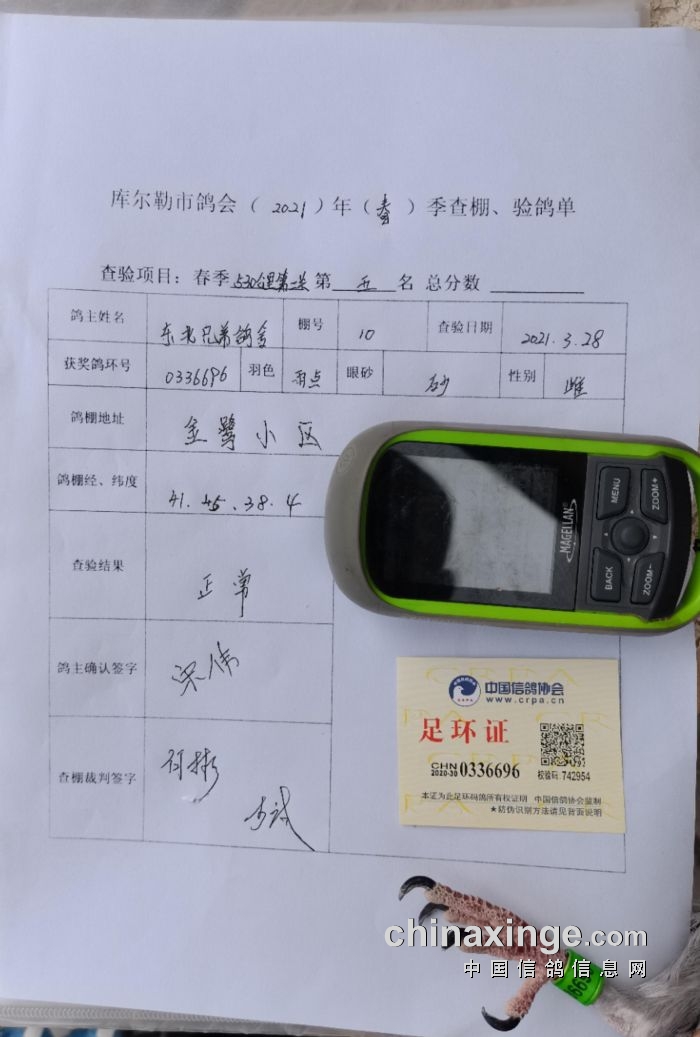 库尔勒市鸽会（2021）年（春）季查棚、验鸽单
查验项目：春季530公里第二关 第 五 名 总分数
鸽主姓名 东北兄弟鸽舍 棚号 10 查验日期 2021.3.28
获奖鸽环号 0336696 羽色 雨点 眼砂 砂 性别 雌
鸽棚地址 金鹭小区
鸽棚经、纬度 41.45.38.4
查验结果 正常
鸽主确认签字 宋伟
查棚裁判签字 何彬
MAGELLAN
MENU
ZOOM+
BACK
ZOOM-
CRPA
中国信鸽协会
www.crpa.cn
足环证
CHN
2020-30 0336696
校验码:742954
本证为此足环码鸽所有权证明 中国信鸽协会监制
★防伪识别方法请见背面说明
chinaxinge.com
中国信鸽信息网